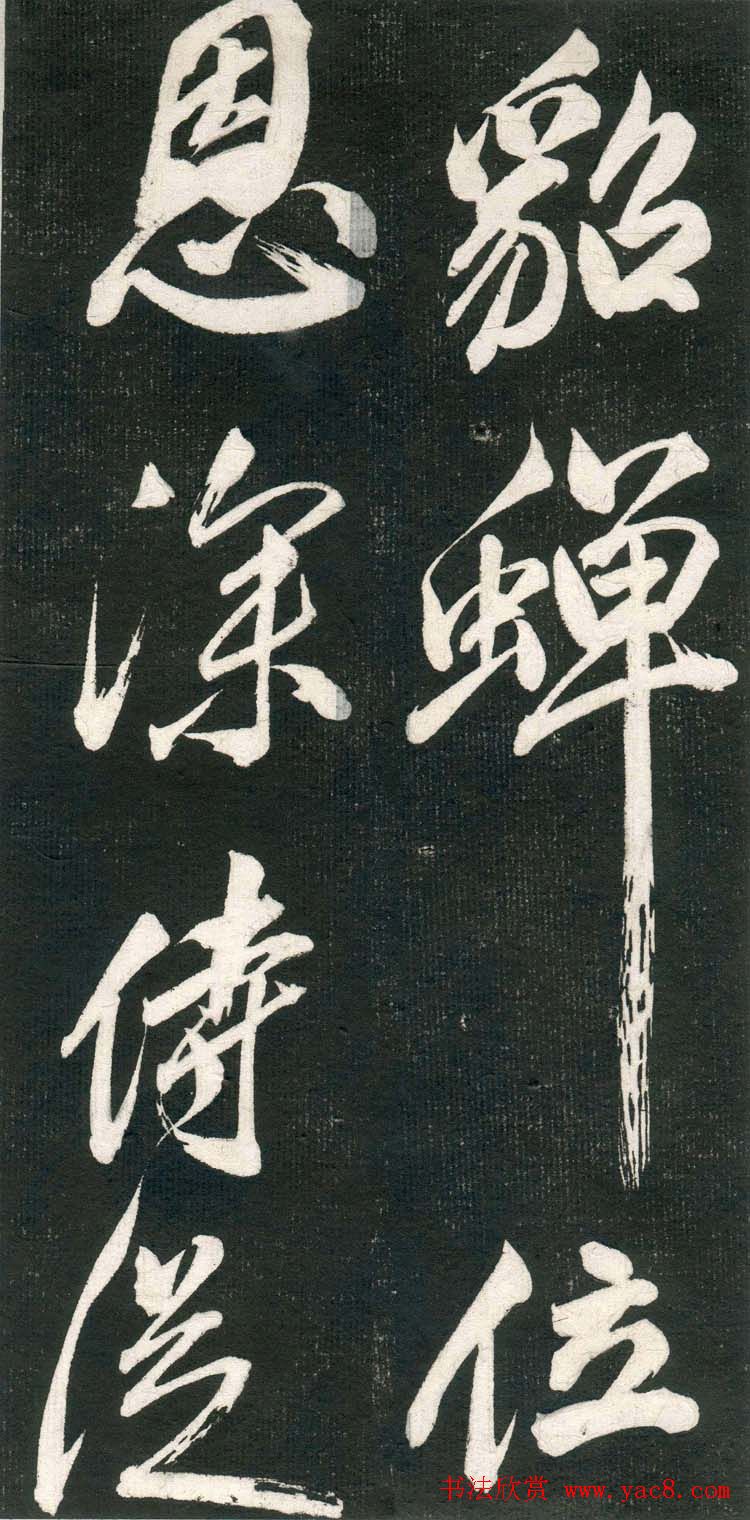 貂蟬位
恩深侍從
书法欣赏 www.yac8.com